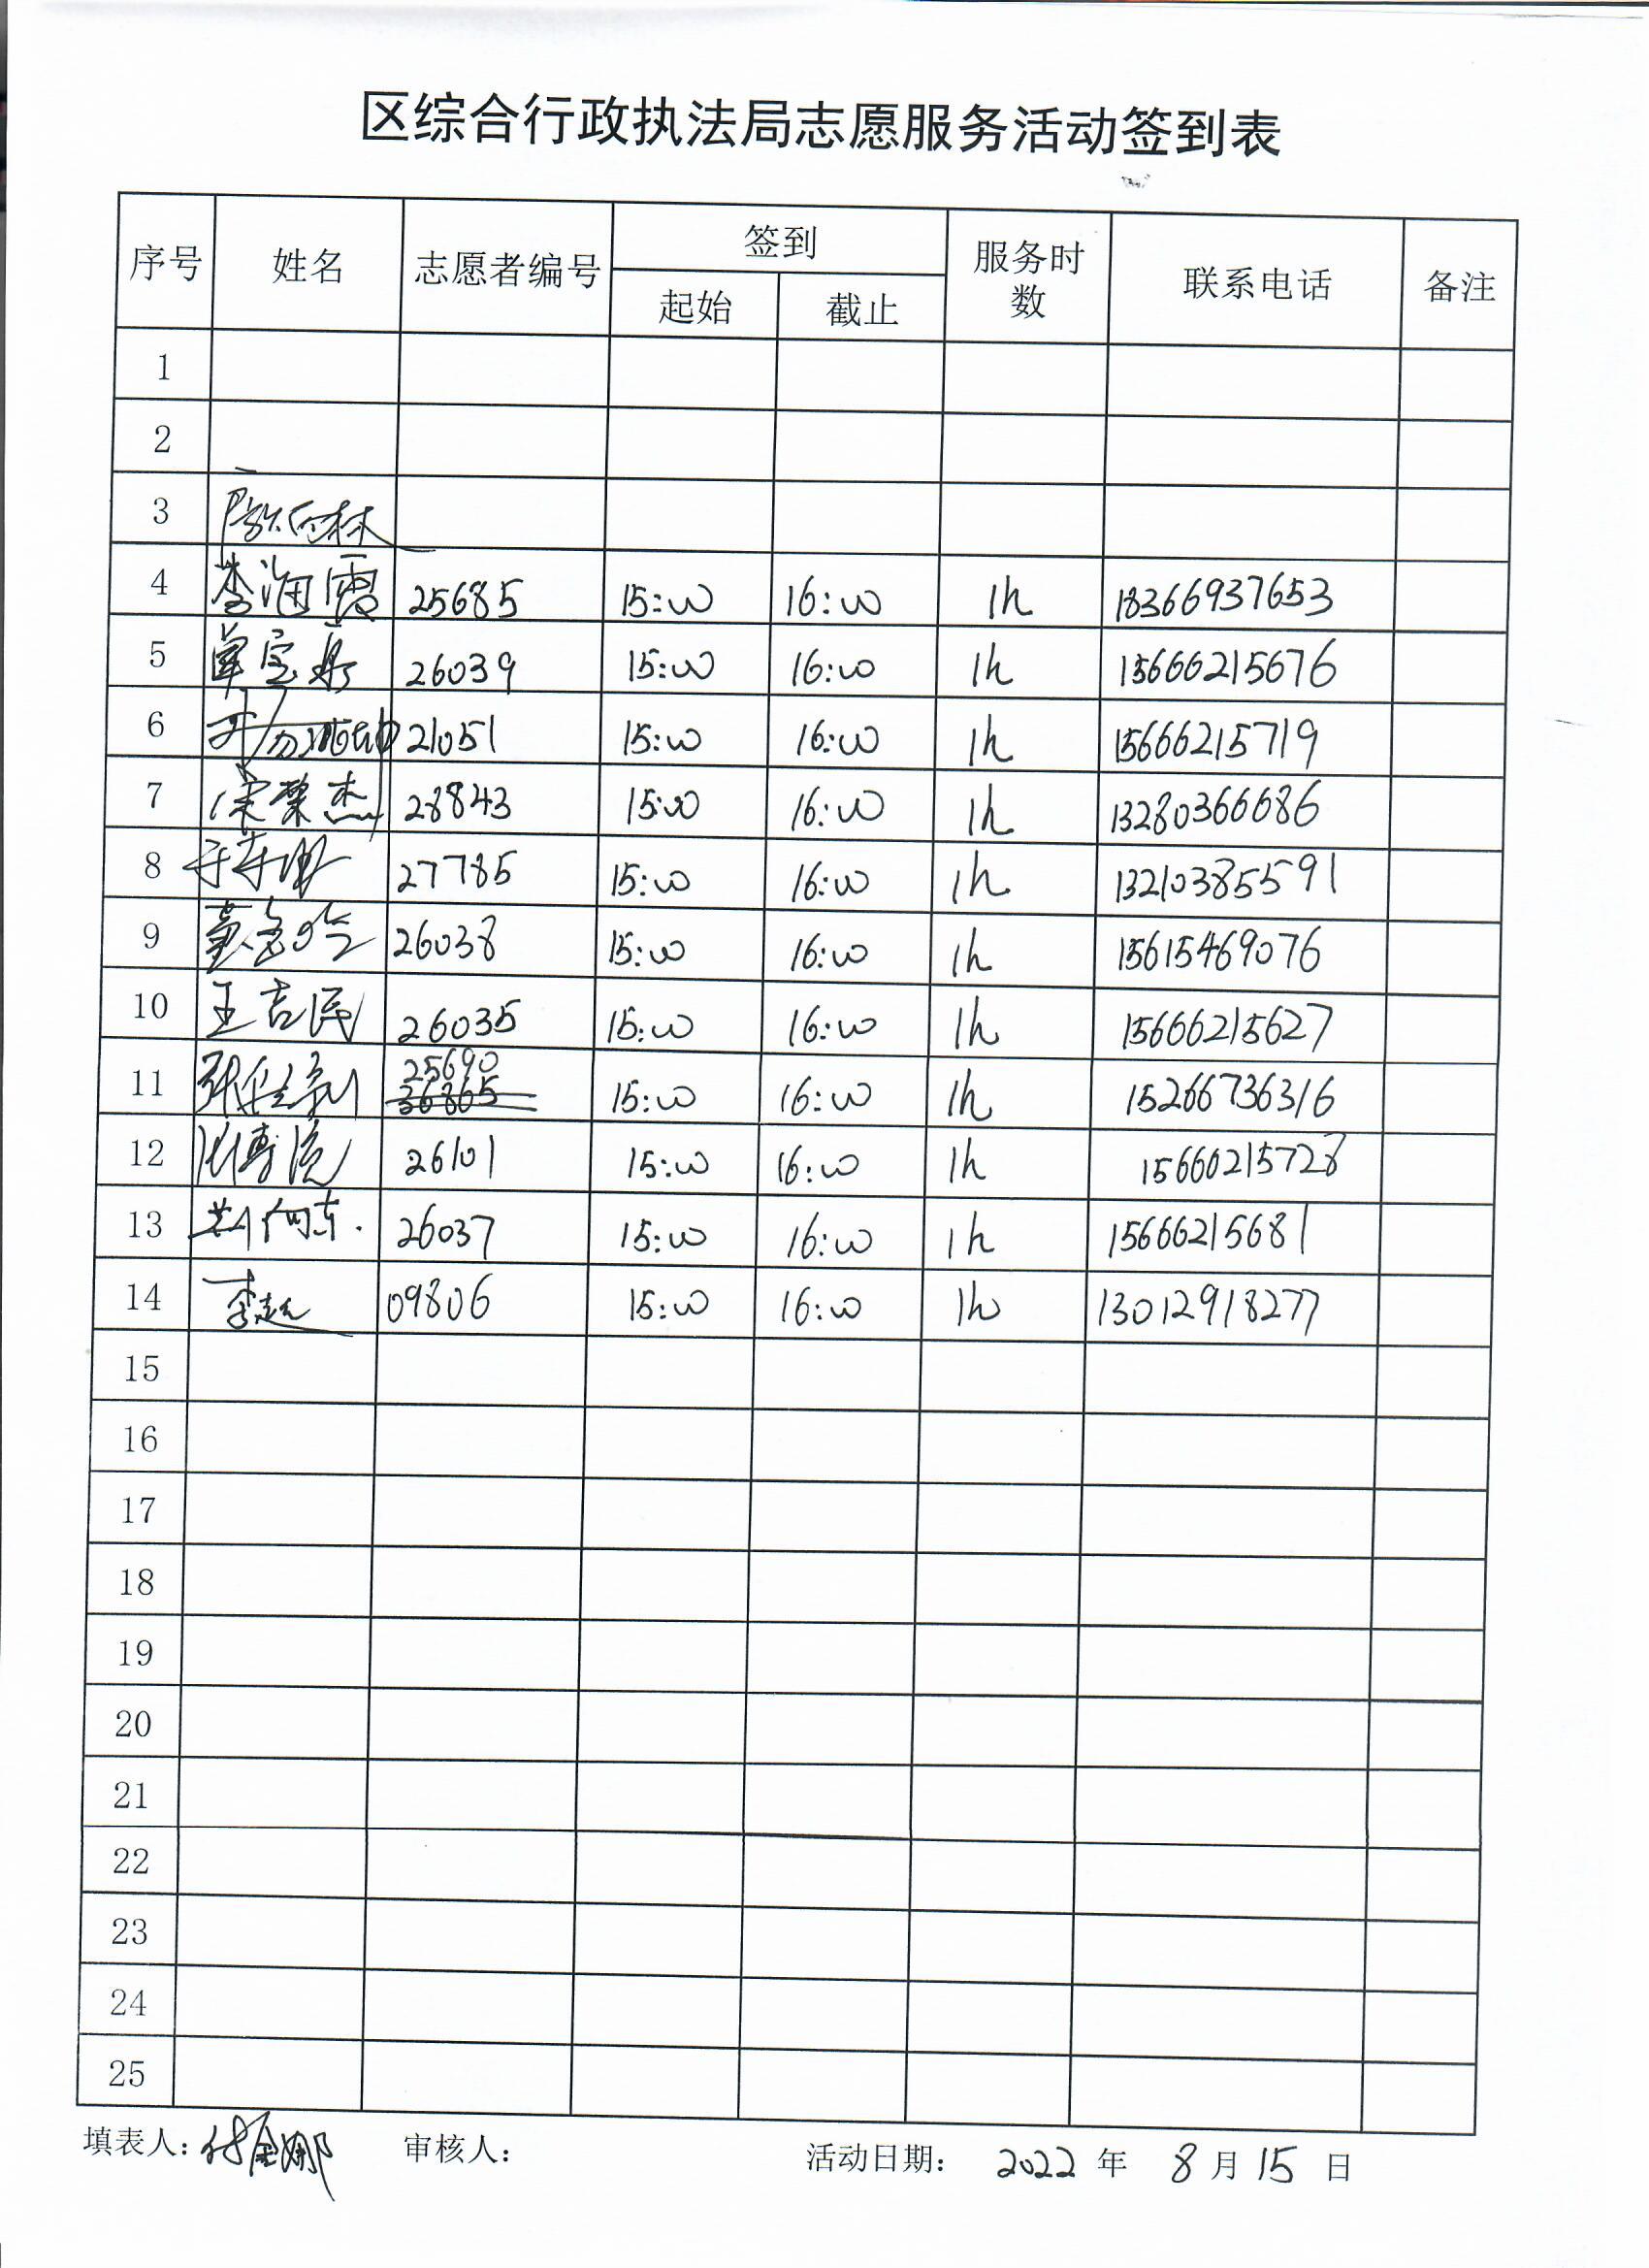 区综合行政执法局志愿服务活动签到表
序号 姓名 志愿者编号 签到 服务时数 联系电话 备注
起始 截止
1
2
3
4 李海霞 25685 15:00 16:00 1h 18366937653
5 单宝 26039 15:00 16:00 1h 15666215676
6 21051 15:00 16:00 1h 15666215719
7 宋荣杰 28843 15:00 16:00 1h 13280366686
8 27785 15:00 16:00 1h 13210385591
9 26038 15:00 16:00 1h 15615469076
10 王吉民 26035 15:00 16:00 1h 15666215627
11 张 25690 36865 15:00 16:00 1h 15266736316
12 26101 15:00 16:00 1h 15666215728
13 向东 26037 15:00 16:00 1h 15666215681
14 李超 09806 15:00 16:00 1h 13012918277
15
16
17
18
19
20
21
22
23
24
25
填表人: 付金娜 审核人: 活动日期: 2022 年 8 月 15 日